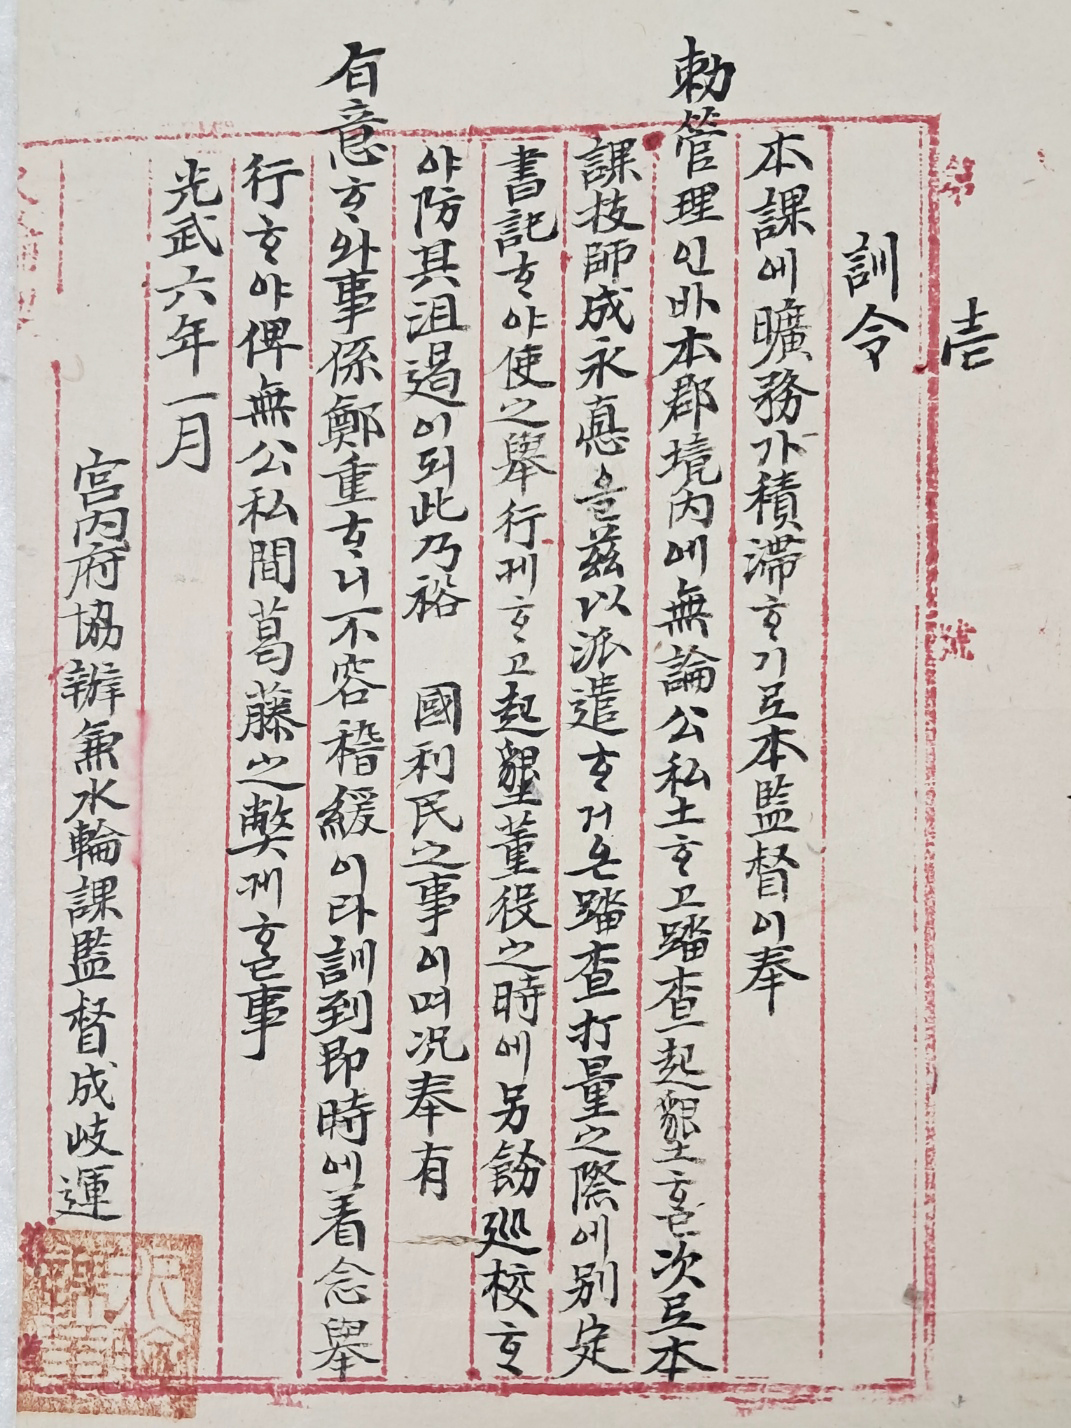 第壹號
訓令
本課에曠務가積滯ᄒᆞ기로本監督이奉
勅管理인바本郡境內에無論公私土ᄒᆞ고踏查起墾ᄒᆞᆯ次로本
課技師成永悳을茲以派遣ᄒᆞ거온踏查打量之際에別定
書記ᄒᆞ야使之擧行케ᄒᆞ고起墾董役之時에另飭巡校ᄒᆞ
야防其沮遏이되此乃裕 國利民之事이며况奉有
旨意ᄒᆞ와事係鄭重ᄒᆞ니不容稽緩이라訓到卽時에着念擧
行ᄒᆞ야俾無公私間葛藤之弊케ᄒᆞᆯ事
光武六年一月
宮內府協辦兼水輪課監督成岐運